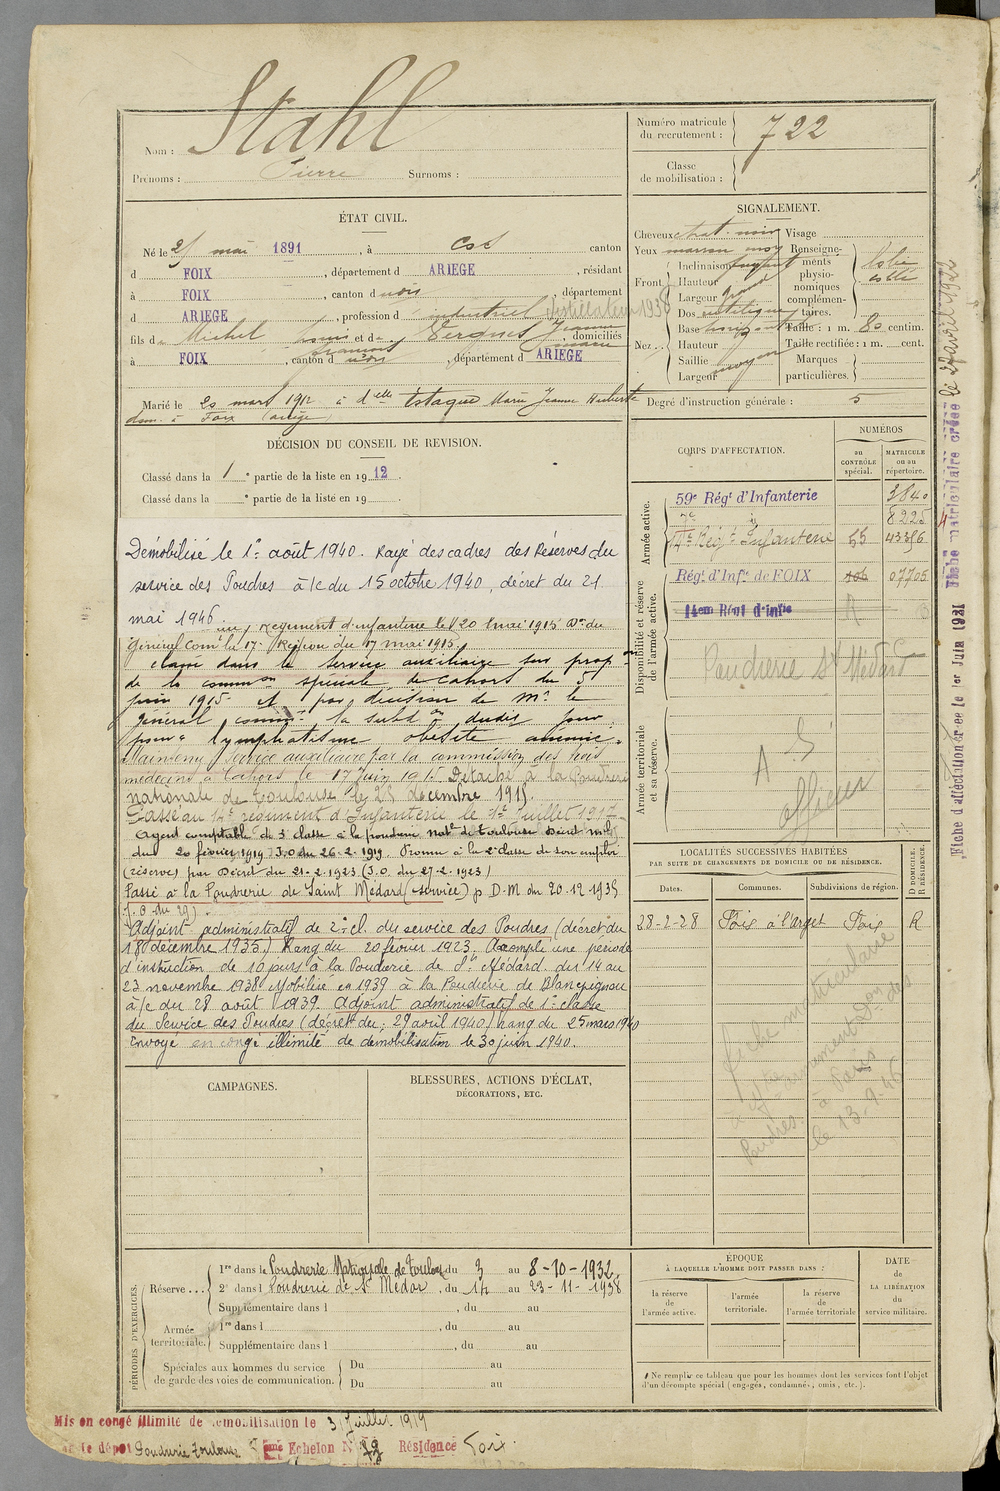 Nom : Stahl
Prénoms : Pierre Surnoms :
Numéro matricule du recrutement : 722
Classe de mobilisation :
ÉTAT CIVIL.
Né le 25 mai 1891, à Cos canton
d FOIX, département d ARIEGE, résidant
à FOIX, canton d Foix département
d ARIEGE, profession d industriel distillateur 1938
fils de Michel Louis et de Vergnes Jeanne, domiciliés
François Marie
à FOIX, canton d Foix, département d ARIEGE
Marié le 20 mars 1912 à d'elle Estaque Marie Jeanne Huberte
dom. à Foix (Ariège)
DÉCISION DU CONSEIL DE REVISION.
Classé dans la 1e partie de la liste en 1912
Classé dans la e partie de la liste en 19
Démobilisé le 1er août 1940. Rayé des cadres des Réserves du
service des Poudres à/c du 15 octobre 1940, décret du 21
mai 1946
Régiment d'infanterie le 20 mai 1915 Don du
Général Comt la 17e Région du 17 mai 1915.
Classé dans le service auxiliaire sur propon
de la common spéciale de Cahors du 5
juin 1915 et par décision de Mr le
Général commt la subdon dudit jour
pour "lymphatisme obésité anémie"
Maintenu service auxiliaire par la commission des trois
médecins à Cahors le 17 juin 1915 Détaché à la Poudrerie
nationale de Toulouse le 25 décembre 1915.
Passé au 14e régiment d'Infanterie le 1er Juillet 1917
Agent comptable de 3e classe à la poudrerie natle de Toulouse Décret mile
du 20 février 1919 J.O du 26-2-1919. Promu à la 2e classe de son emploi
(réserve) par Décret du 21-2-1923 (J.O. du 27-2-1923)
Passé à la Poudrerie de Saint Médard (service) p D.M du 20-12 1935
J.O du 29).
Adjoint administratif de 2e cl. du service des Poudres (décret du
18 décembre 1935.) Rang du 20 février 1923. Accompli une période
d'instruction de 10 jours à la Poudrerie de St Médard du 14 au
23 novembre 1938 Mobilisé en 1939 à la Poudrerie de Blancpignon
à/c du 28 août 1939. Adjoint administratif de 1e classe
du Service des Poudres (décret du 29 avril 1940) Rang du 25 mars 1940
Envoyé en congé illimité de démobilisation le 30 juin 1940.
SIGNALEMENT.
Cheveux chat. noir Visage
Yeux marron moy
Front Inclinaison fuyant
Hauteur
Largeur grand
Nez Dos rectiligne
Base horizont
Hauteur
Saillie
Largeur moyen
Renseignements physionomiques complémentaires.
Taille : 1 m. 80 centim.
Taille rectifiée : 1 m. cent.
Marques particulières.
Degré d'instruction générale : 5
CORPS D'AFFECTATION.
NUMÉROS
au CONTRÔLE spécial.
MATRICULE ou au répertoire.
Armée active.
59e Régt d'Infanterie 3840
7e 8225
14e Régt Infanterie 55 43356
Disponibilité et réserve de l'armée active.
Régt d'Infie de FOIX 106 07705
14em Régt d'infie R
Poudrerie St Médard
Armée territoriale et sa réserve.
A S
officier
LOCALITÉS SUCCESSIVES HABITÉES
PAR SUITE DE CHANGEMENTS DE DOMICILE OU DE RÉSIDENCE.
D DOMICILE. R RÉSIDENCE.
Dates. Communes. Subdivisions de région.
28-2-28 Foix à l'Arget Foix R
fiche matriculaire
Poudres à Paris
le 13-9-46
CAMPAGNES.
BLESSURES, ACTIONS D'ÉCLAT,
DÉCORATIONS, ETC.
PÉRIODES D'EXERCICES.
Réserve... 1re dans la Poudrerie Nationale de Toulouse du 3 au 8-10-1932.
2e dans l Poudrerie de St Médar, du 14 au 23-11-1938
Supplémentaire dans l, du au
Armée territoriale. 1re dans l, du au
Supplémentaire dans l, du au
Spéciales aux hommes du service de garde des voies de communication. Du au
Du au
ÉPOQUE
À LAQUELLE L'HOMME DOIT PASSER DANS :
la réserve de l'armée active.
l'armée territoriale.
la réserve de l'armée territoriale
DATE de LA LIBÉRATION du service militaire.
Ne remplir ce tableau que pour les hommes dont les services font l'objet
d'un décompte spécial (engagés, condamnés, omis, etc.).
Mis en congé illimité de démobilisation le 3 Juillet 1919
le dépôt Poudrerie Toulouse eme Echelon N° Résidence Foix.
Fiche d'affectation créée le 1er Juin 1931
Fiche matriculaire créée le